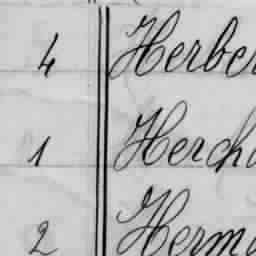 4 Herber
1 Herch
2 Herm